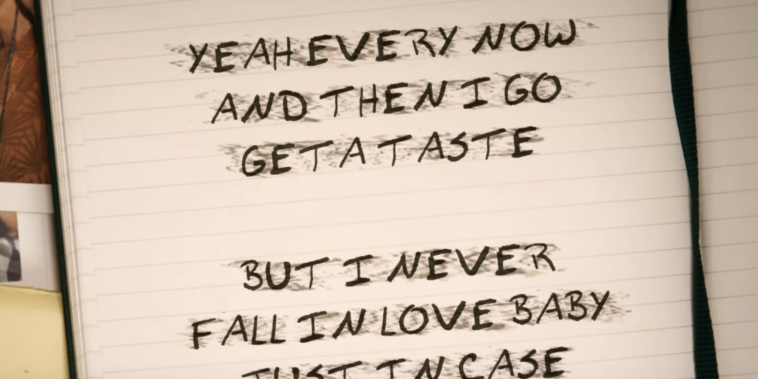 YEAH EVERY NOW
AND THEN I GO
GET A TASTE
BUT I NEVER
FALL IN LOVE BABY
JUST IN CASE